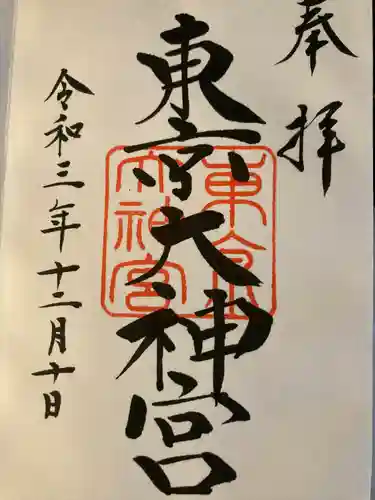 奉拝
東京大神宮
東京大神宮
令和三年十二月十日